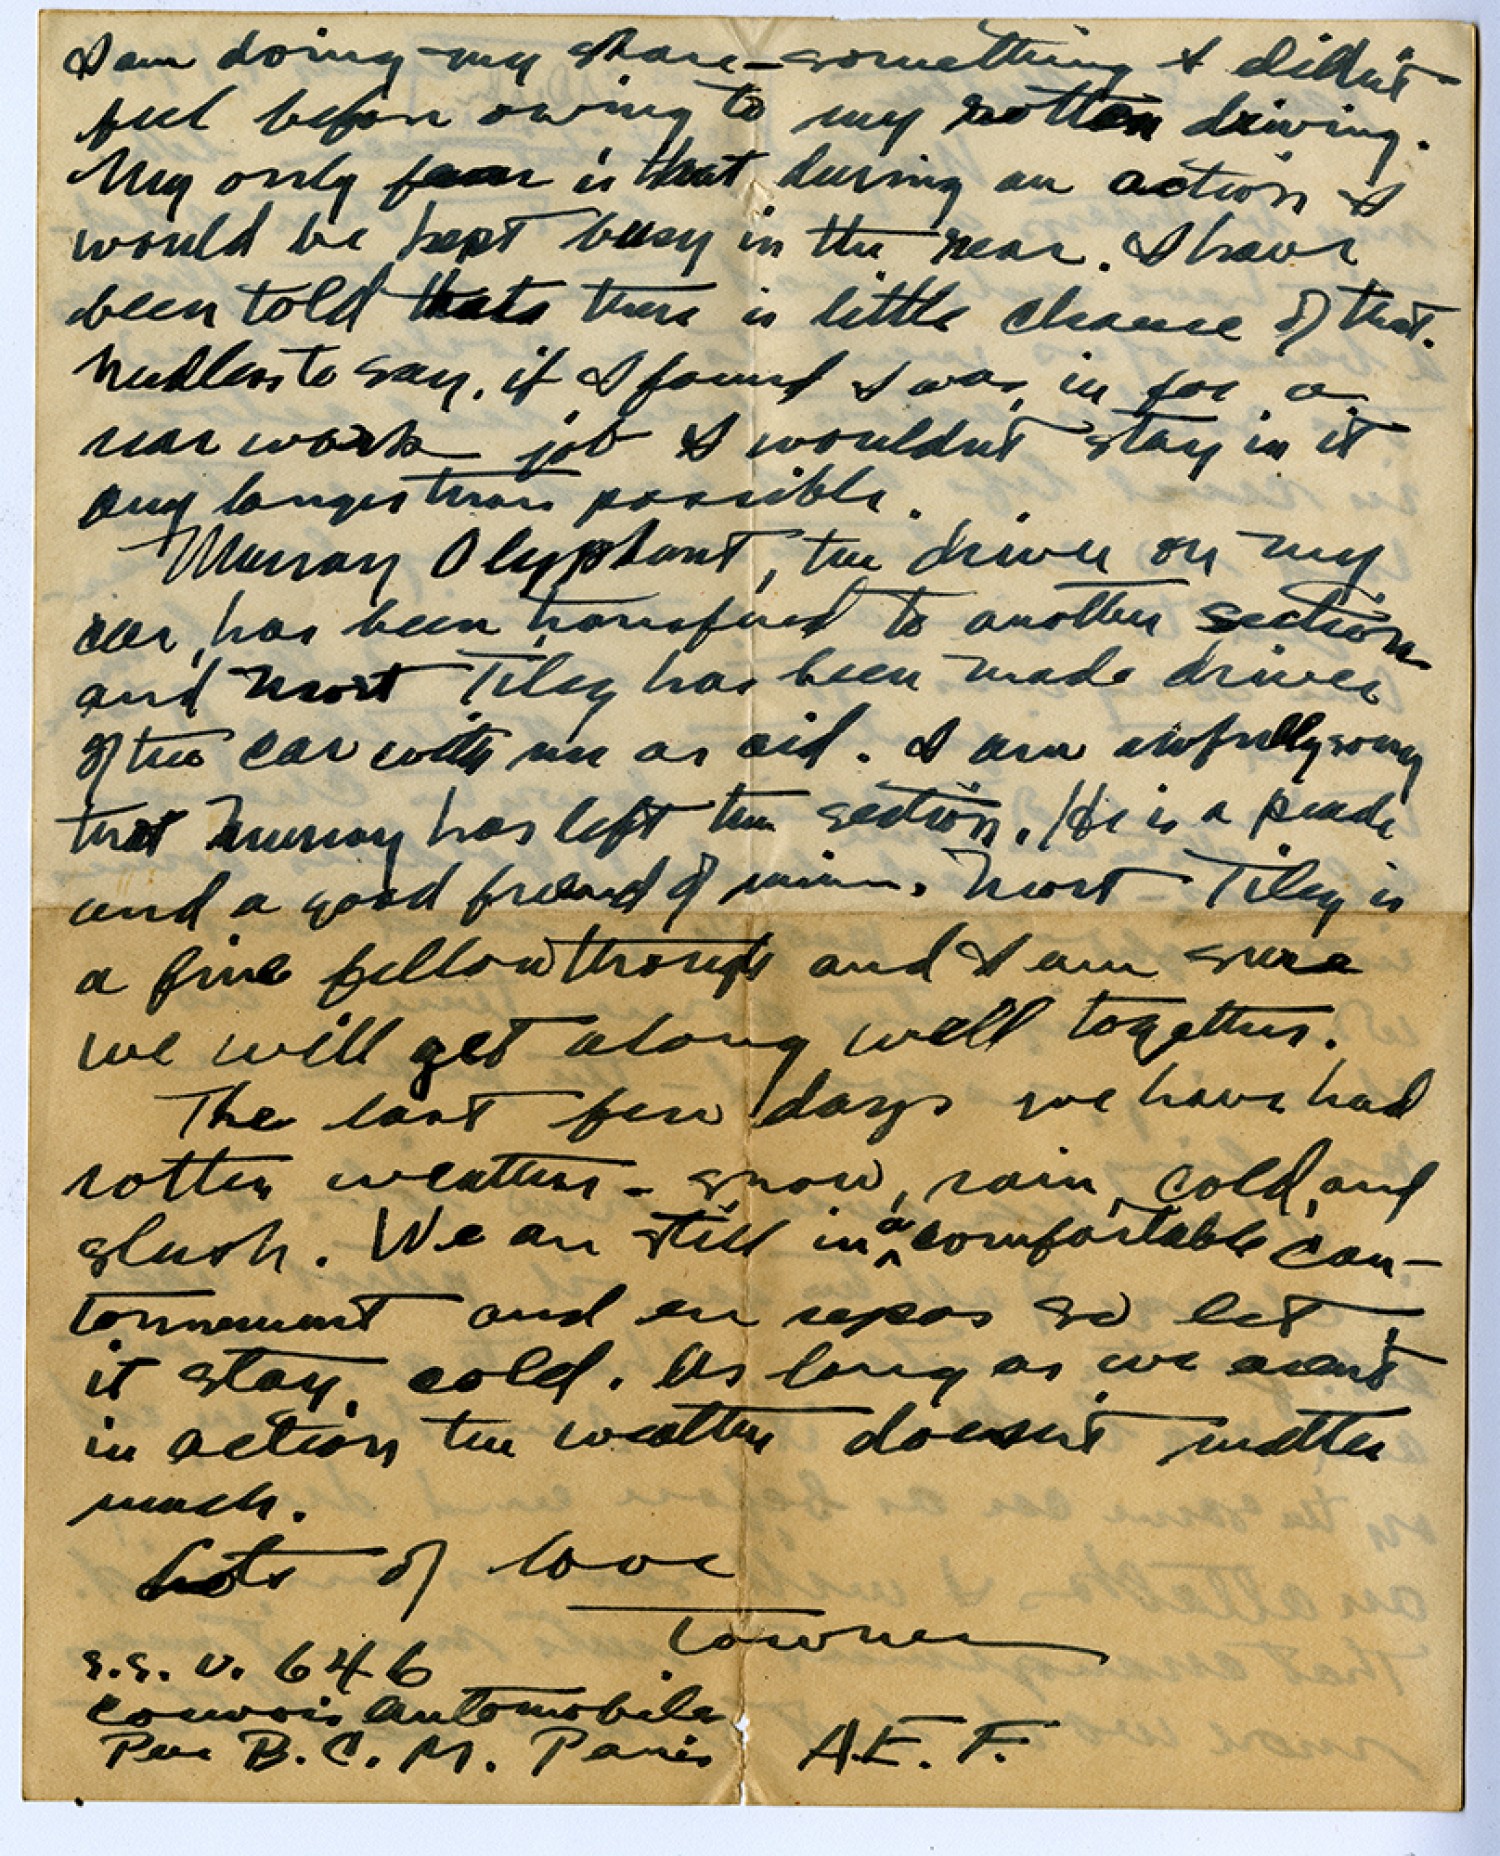 I am doing my share – something I didn't
feel before owing to my rotten driving.
My only fear is that during an action I
would be kept busy in the rear. I have
been told thats there is little chance of that.
Needless to say, if I found I was in for a
rear work job I wouldn't stay in it
any longer than possible.
Murray Olyphant, the driver on my
car, has been transfered to another section
and Mort Tiley has been made driver
of the car with me as aid. I am awfully sorry
that Murray has left the section. He is a peach
and a good friend of mine. Mort Tiley is
a fine fellow though and I am sure
we will get along well together.
The last few days we have had
rotten weather – snow, rain, cold, and
slush. We are still in a comfortable can-
tonnement and en repos so let
it stay cold. As long as we aren't
in action the weather doesn't matter
much.
Lots of love
Towner
S.S.U. 646
Convois Automobile
Par B.C.M. Paris A.E.F.